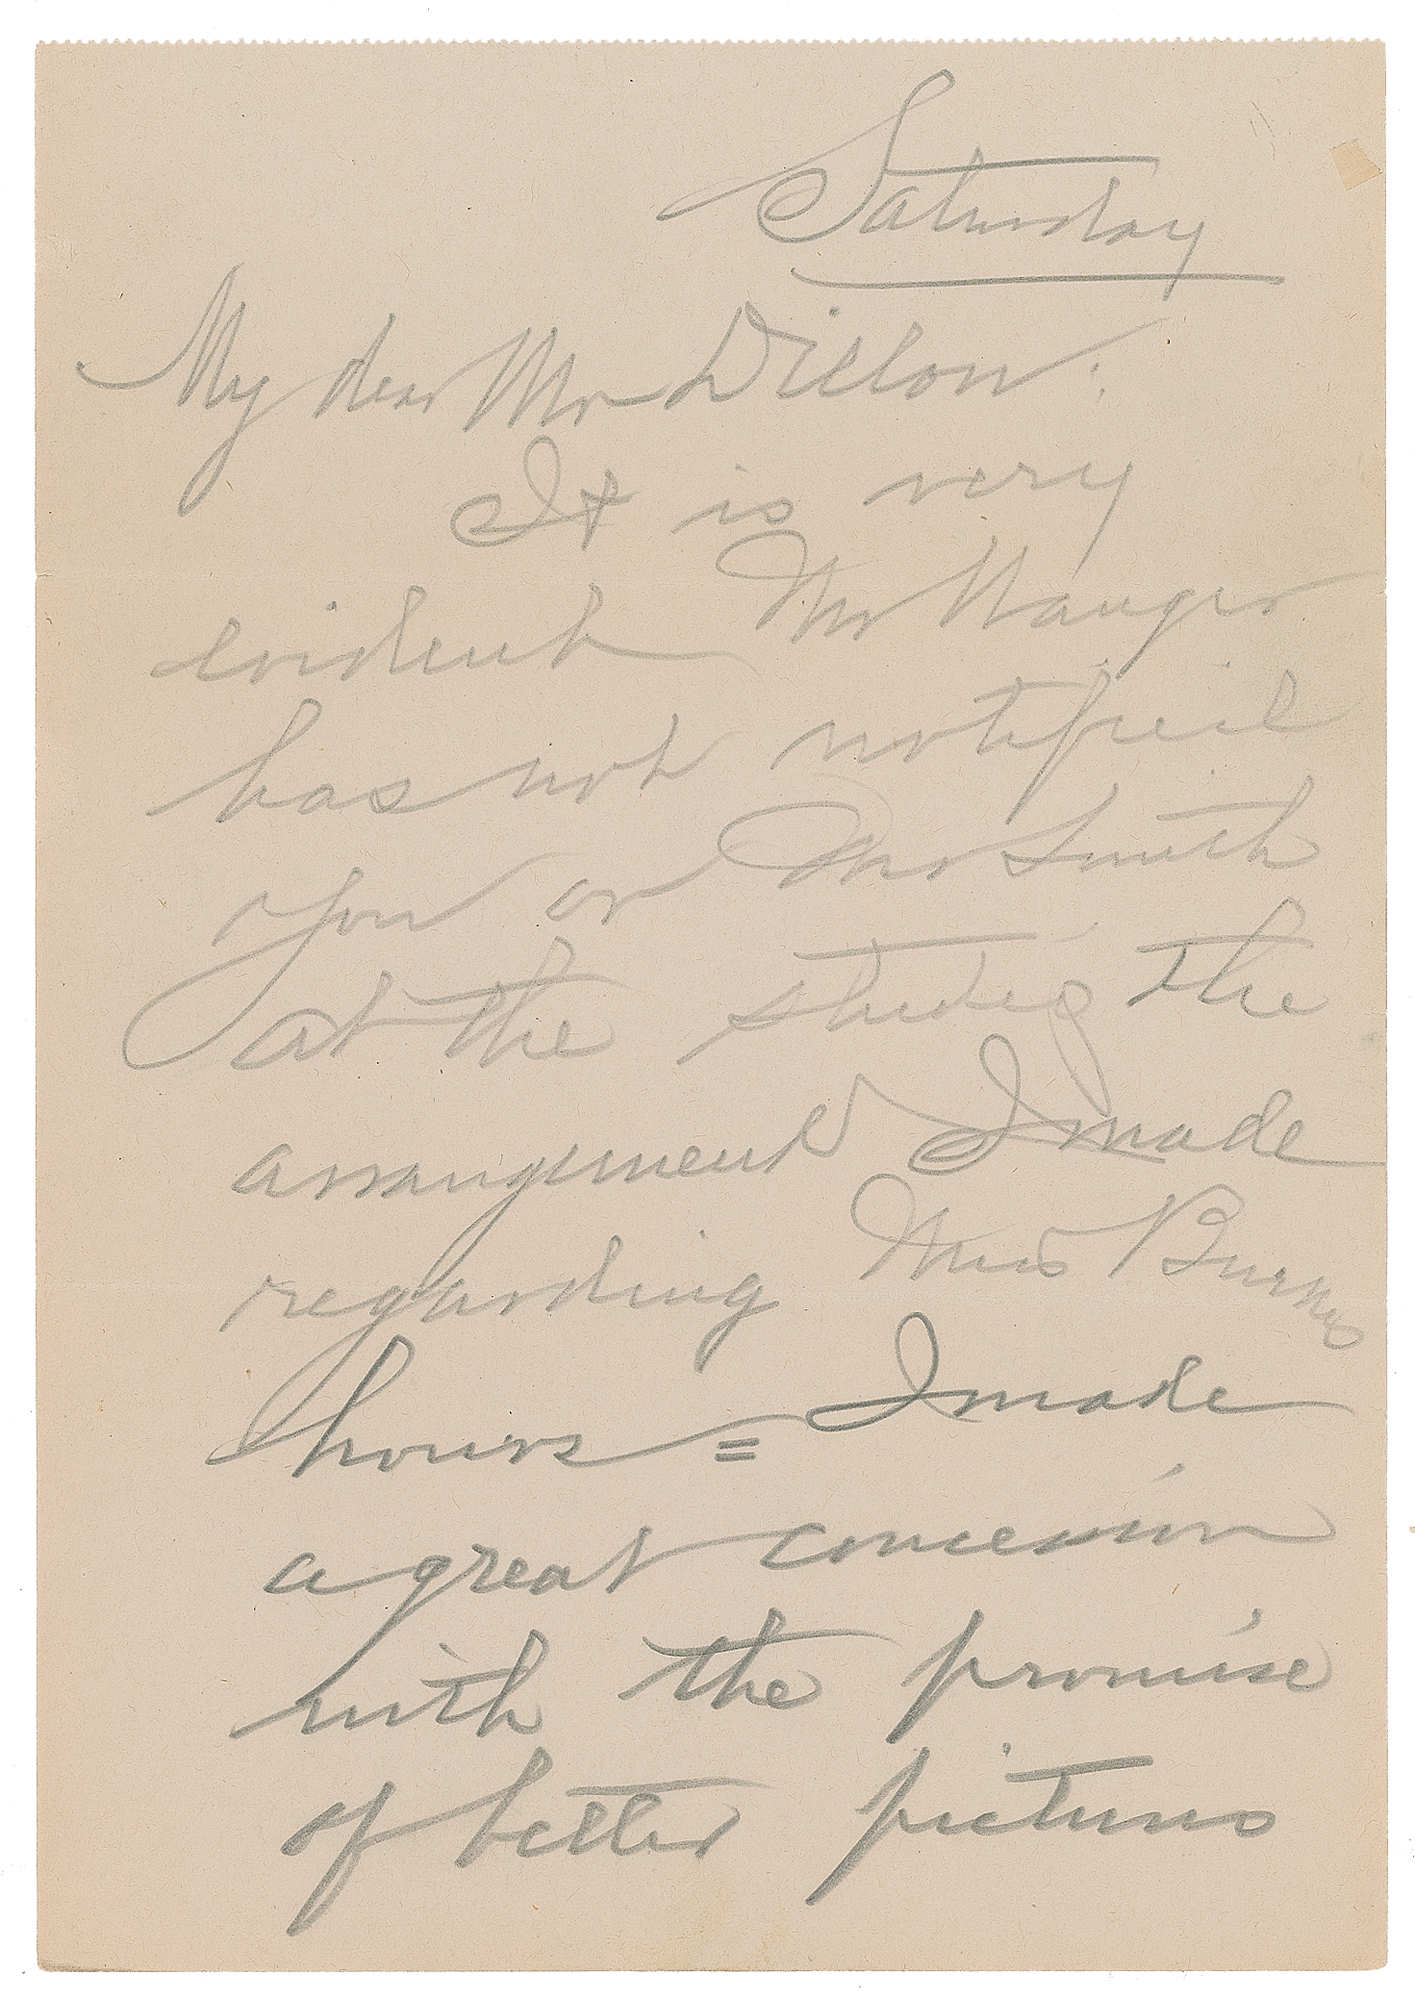 Saturday
My dear Mr Dillon:
It is very
evident Mr Wanger
has not notified
you or Mr Smith
at the studio, the
arrangement I made
regarding Miss Burkes
hours = I made
a great concession
with the promise
of better pictures